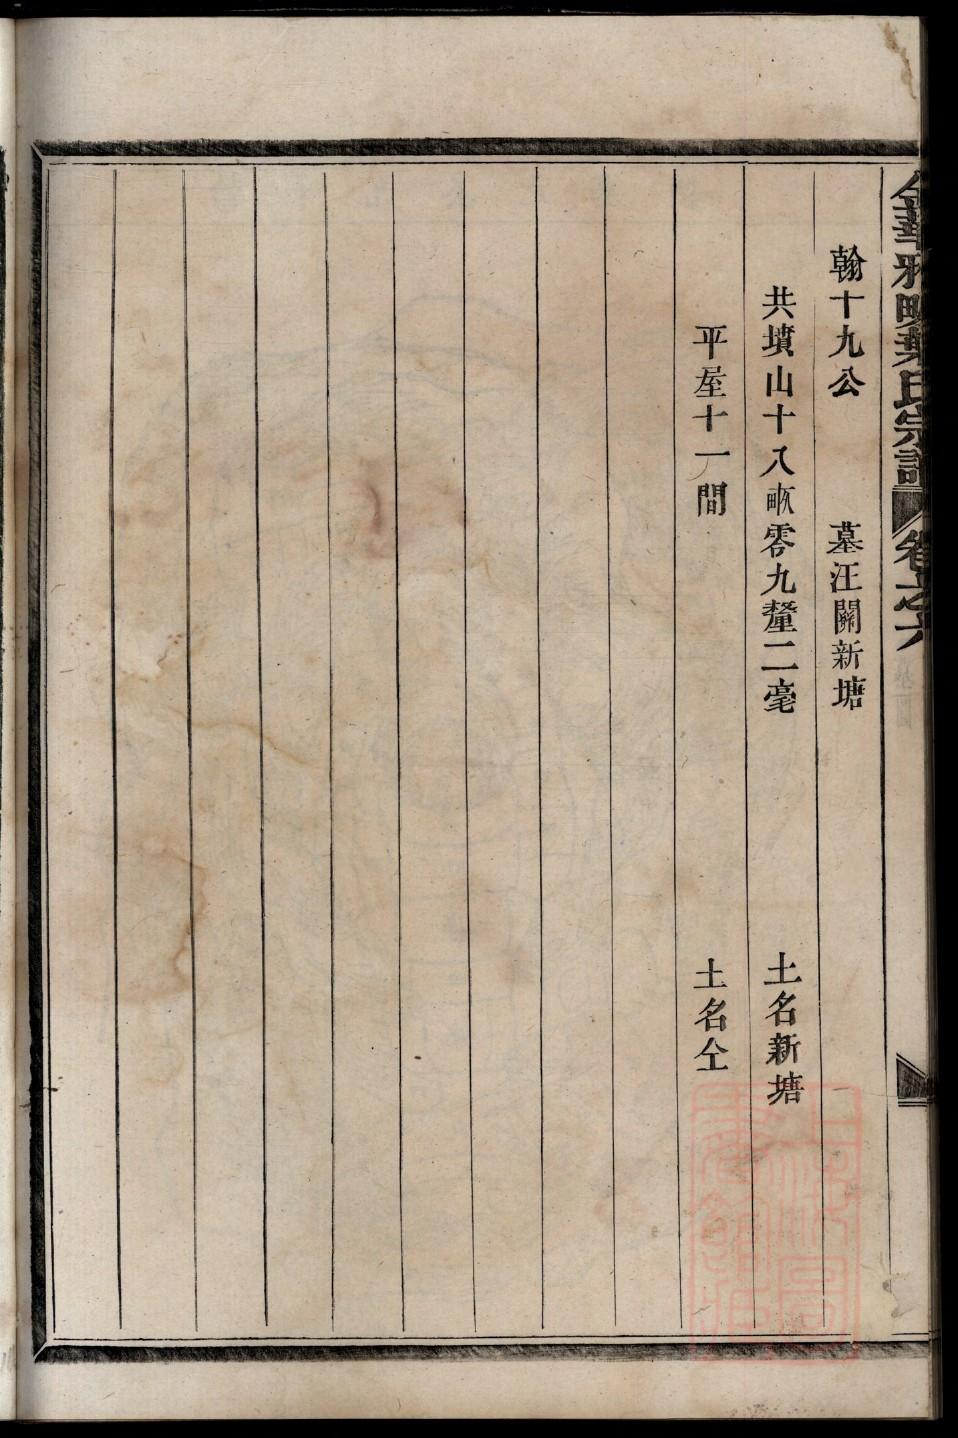 金華雅畈葉氏宗譜 卷之六
翰十九公 墓汪關新塘
共墳山十八畝零九釐二毫 土名新塘
平屋十一間 土名仝